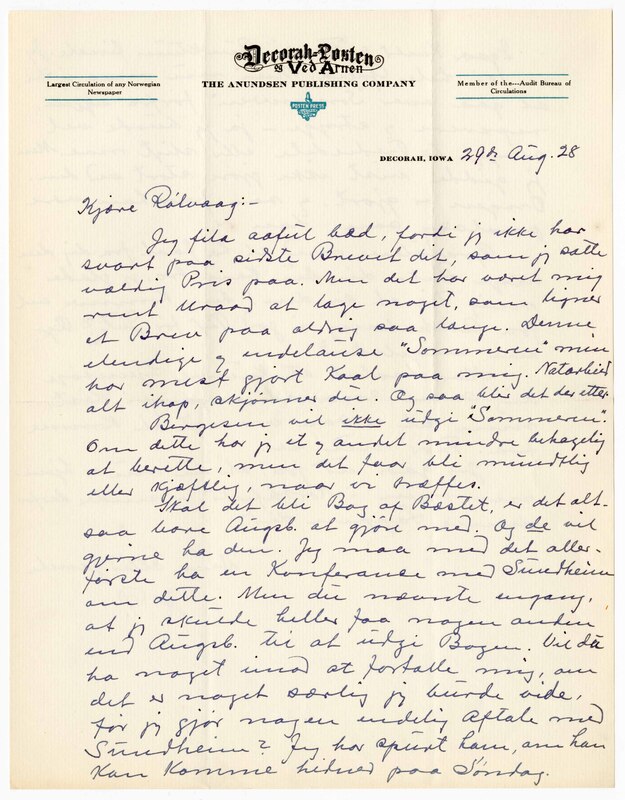 Decorah-Posten
Ved Arnen
THE ANUNDSEN PUBLISHING COMPANY
Largest Circulation of any Norwegian
Newspaper
Member of the---Audit Bureau of
Circulations
POSTEN PRESS
DECORAH, IOWA 29de Aug. 28
Kjære Rølvaag:-
Jeg fila aaful bæd, fordi jeg ikke har
svart paa sidste Brevit dit, som jeg sætte
vældig Pris paa. Men det har været mig
rent Uraad at lage noget, som ligner
et Brev paa aldrig saa lange. Denne
elendige og endelause "Sommeren" min
har mest gjort Kaal paa mig. Natarbeid
alt ihop, skjønner du. Og saa blir det der etter.
Bergesen vil ikke udgi "Sommeren".
Om dette har jeg it og andet mindre behagelig
at berette, men det faar bli mundtlig
eller kjæftlig, naar vi træffes.
Skal det bli Bog af Bæstet, er det alt-
saa bare Augsb. at gjøre med. Og de vil
gjerne ha den. Jeg maa med det aller-
første ha en Konferanse med Sundheim
om dette. Men du nævnte engang,
at jeg skulde heller faa nogen anden
end Augsb. til at udgi Bogen. Vil du
ha noget imod at fortælle mig, om
det er noget særlig jeg burde vide,
før jeg gjør nogen endelig Aftale med
Sundheim? Jeg har spurt ham, om han
kan komme hidned paa Søndag.